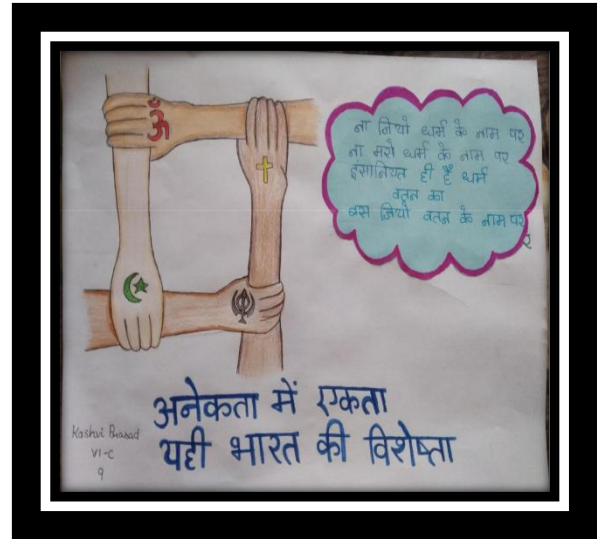 ॐ
ना जियो धर्म के नाम पर
ना मरो धर्म के नाम पर
इंसानियत ही है धर्म
वतन का
बस जियो वतन के नाम पर
अनेकता में एकता
यही भारत की विशेष्ता
Kashvi Prasad
VI-C
9